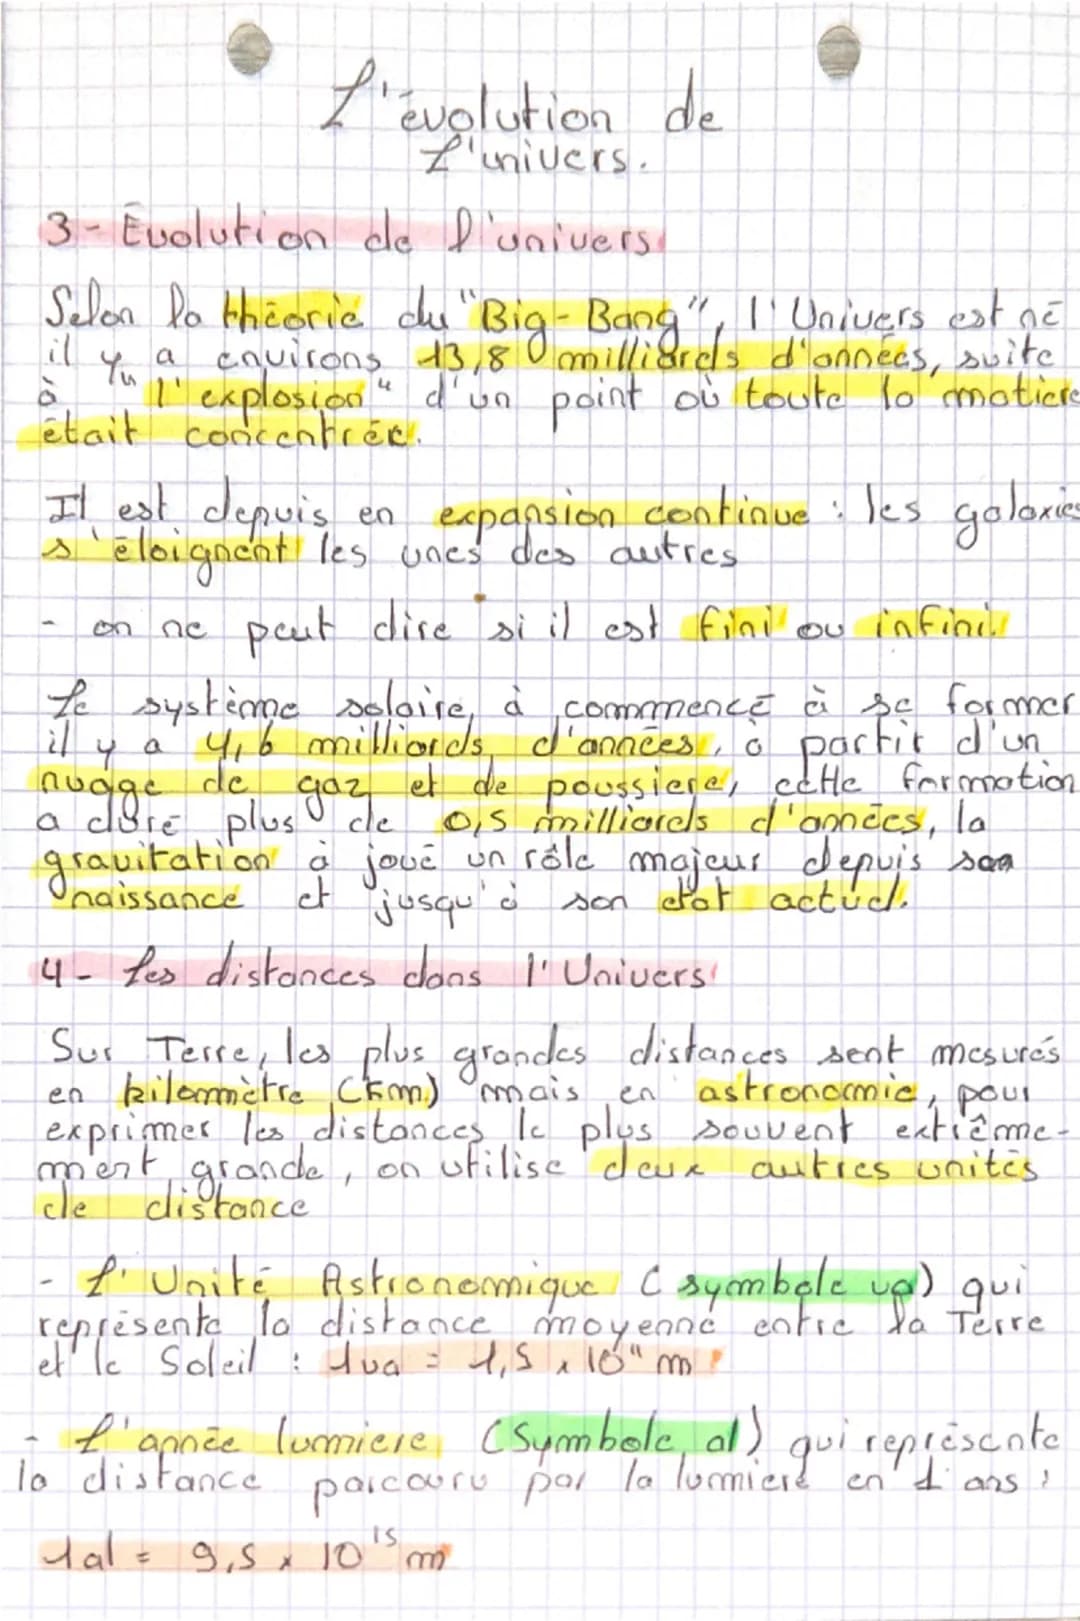 L'évolution de
l'univers.
3- Évolution de l'univers
Selon la théorie du "Big-Bang", l'Univers est né
il y a environs 13,8 milliards d'années, suite
à "l'explosion" d'un point où toute la matière
était concentrée.
Il est depuis en expansion continue : les galaxies
s'éloignent les unes des autres
- on ne peut dire si il est fini ou infini.
Le système solaire, à commencé à se former
il y a 4,6 milliards d'années, à partir d'un
nuage de gaz et de poussiere, cette formation
a duré plus de 0,5 milliards d'années, la
gravitation à joué un rôle majeur depuis sa
naissance et jusqu'à son état actuel.
4- Les distances dans l'Univers
Sur Terre, les plus grandes distances sent mesurés
en kilommètre (km) mais en astronomie, pour
exprimer les distances le plus souvent extrême-
ment grande, on utilise deux autres unités
de distance
- L'Unité Astronomique (symbole ua) qui
représente la distance moyenne entre la Terre
et le Soleil : 1ua = 1,5 x 10¹¹ m
- L'année lumiere (Symbole al) qui représente
la distance parcouru par la lumiere en 1 ans :
1al = 9,5 x 10¹⁵ m